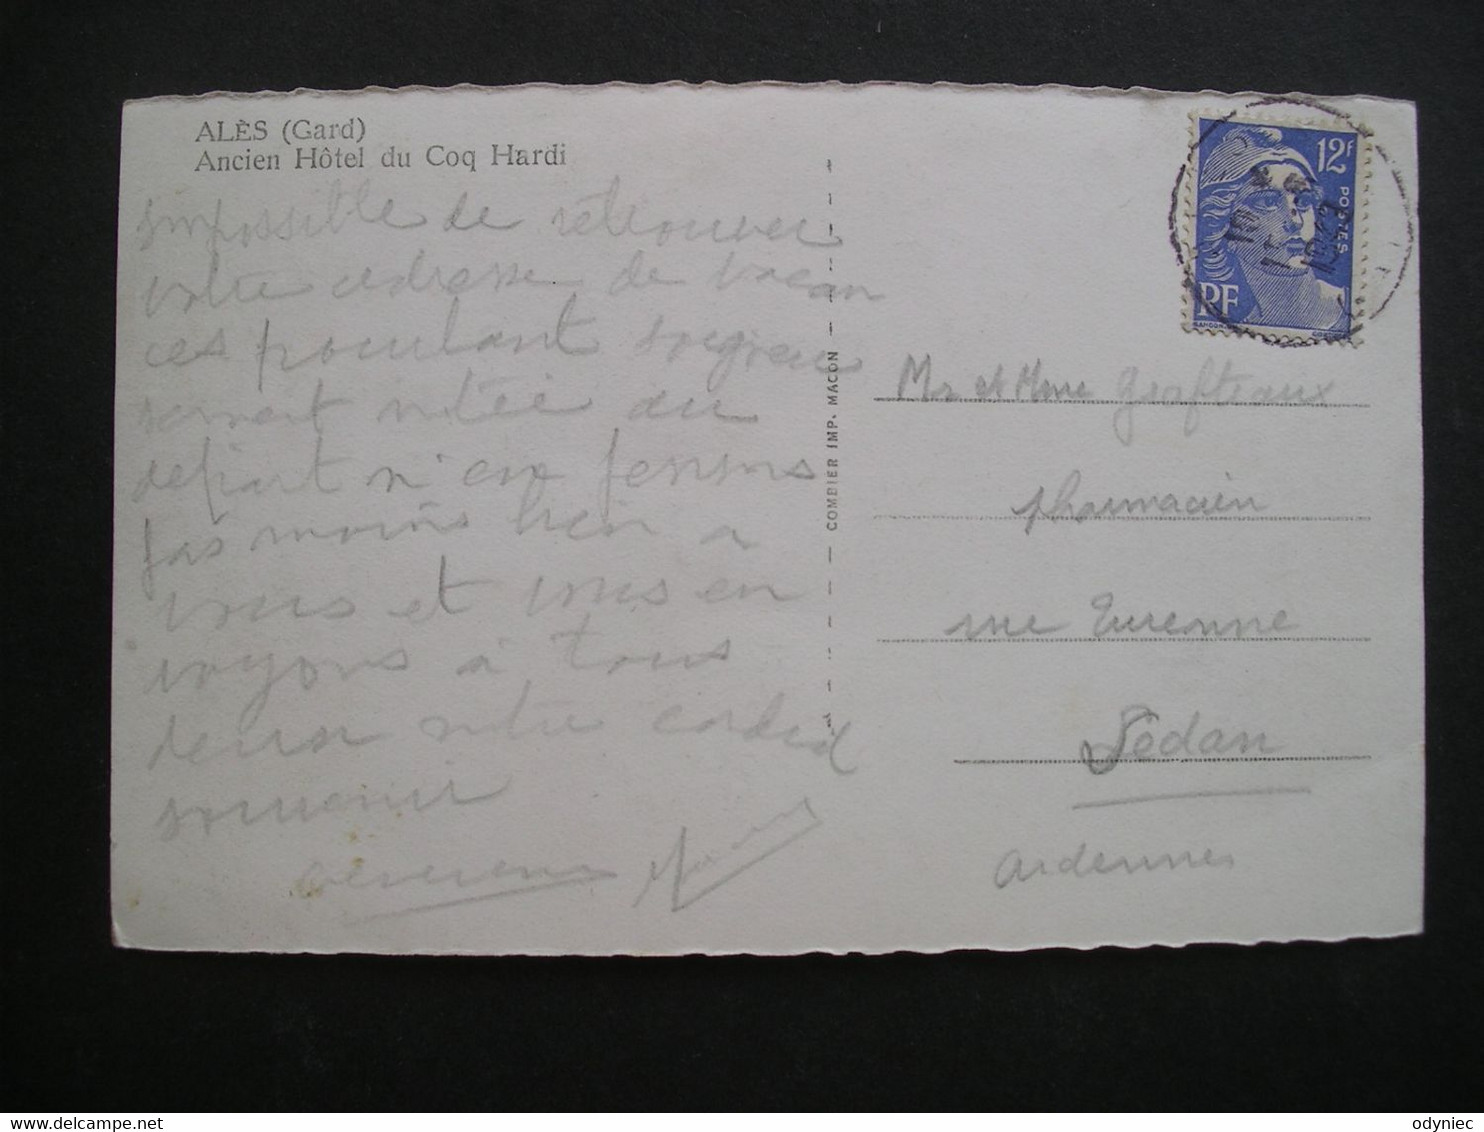 ALÈS (Gard)
Ancien Hôtel du Coq Hardi
impossible de retrouver
votre adresse de vacan
ces pourtant soigneu
sement notée au
départ n'en pensons
pas moins bien a
vous et vous en
voyons à tous
deux notre cordial
souvenir
COMBIER IMP. MACON
12F
POSTES
RF
Mr et Mme
pharmacien
rue Turenne
Sedan
Ardennes
odyniec
delcampe.net